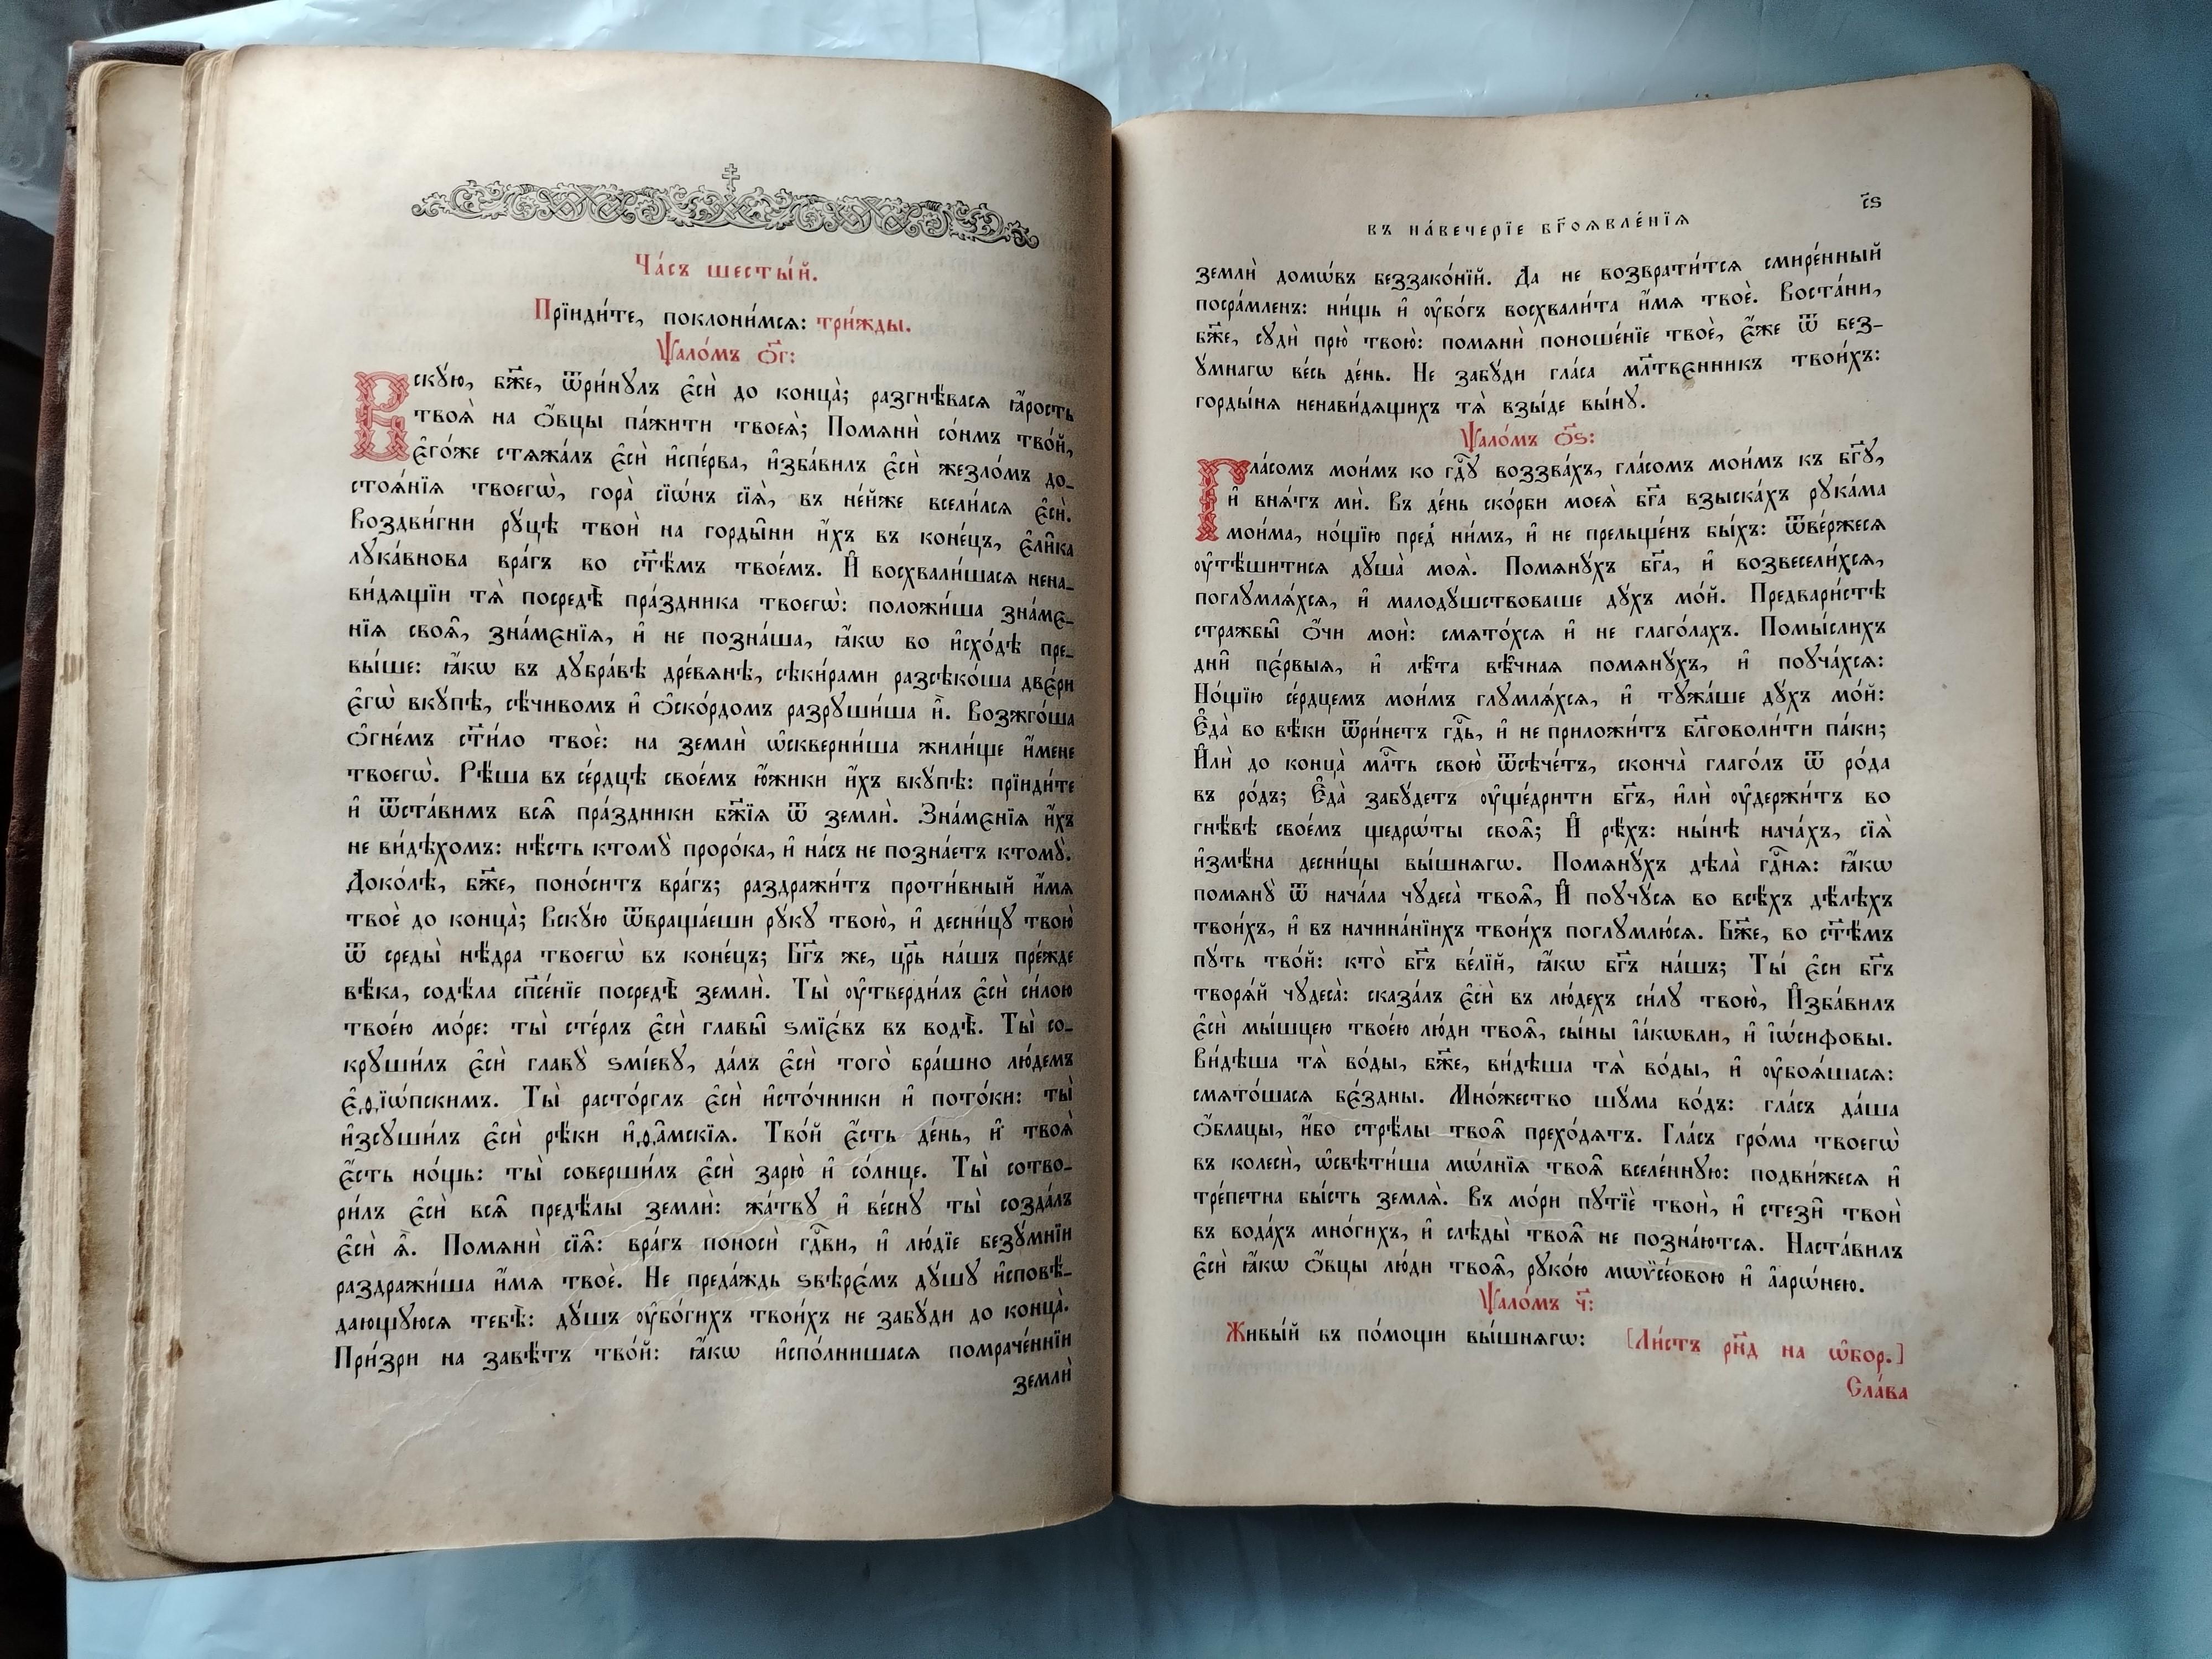 Ча́съ шесты́й.
Прїиди́те, поклони́мсѧ: три́жды.
Ѱало́мъ о҃г:
Вскꙋ́ю, бж҃е, ѿри́нꙋлъ є҆сѝ до конца̀; разгнѣ́васѧ ꙗ҆́рость
твоѧ̀ на ѻ҆́вцы па́жити твоеѧ̀; Помѧнѝ со́нмъ тво́й,
є҆го́же стѧжа́лъ є҆сѝ и҆спе́рва, и҆зба́вилъ є҆сѝ жезло́мъ до-
стоѧ́нїѧ твоегѡ̀, гора̀ сїѡ́нъ сїѧ̀, въ не́йже всели́лсѧ є҆сѝ.
Воздви́гни рꙋ́цѣ твоѝ на горды̑ни и҆́хъ въ коне́цъ, є҆ли̑ка
лꙋка́внова вра́гъ во ст҃ѣ́мъ твое́мъ. И҆ восхвали́шасѧ нена-
ви́дѧщїи тѧ̀ посредѣ̀ пра́здника твоегѡ̀: положи́ша зна́мє-
нїѧ своѧ̑, зна́мєнїѧ, и҆ не позна́ша, ꙗ҆́кѡ во и҆схо́дѣ пре-
вы́ше: ꙗ҆́кѡ въ дꙋбра́вѣ дре́вѧнѣ, сѣки́рами разсѣко́ша двє́ри
є҆гѡ̀ вкꙋ́пѣ, сѣ́чивомъ и҆ ѻ҆ско́рдомъ разрꙋши́ша и҆̀. Возжго́ша
ѻ҆гне́мъ ст҃и́ло твоѐ: на землѝ ѡ҆скверни́ша жили́ще и҆́мене
твоегѡ̀. Рѣ́ша въ се́рдцѣ свое́мъ ю҆́жики и҆́хъ вкꙋ́пѣ: прїиди́те
и҆ ѿста́вимъ всѧ̑ пра́здники бж҃їѧ ѿ землѝ. Зна́мєнїѧ и҆́хъ
не ви́дѣхомъ: нѣ́сть ктомꙋ̀ проро́ка, и҆ на́съ не позна́етъ ктомꙋ̀.
Доко́лѣ, бж҃е, поно́ситъ вра́гъ; раздражи́тъ проти́вный и҆́мѧ
твоѐ до конца̀; Вскꙋ́ю ѿвраща́еши рꙋ́кꙋ твою̀, и҆ десни́цꙋ твою̀
ѿ среды̀ нѣ́дра твоегѡ̀ въ коне́цъ; Бг҃ъ же, цр҃ь на́шъ пре́жде
вѣ́ка, содѣ́ла сп҃се́нїе посредѣ̀ землѝ. Ты̀ ᲂу҆тверди́лъ є҆сѝ си́лою
твое́ю мо́ре: ты̀ сте́рлъ є҆сѝ главы̑ ѕмїє́въ въ водѣ̀. Ты̀ со-
крꙋши́лъ є҆сѝ главꙋ̀ ѕмі́евꙋ, да́лъ є҆сѝ того̀ бра́шно лю́демъ
є҆ѳїѡ́пскимъ. Ты̀ расто́рглъ є҆сѝ и҆сто́чники и҆ пото́ки: ты̀
и҆зсꙋши́лъ є҆сѝ рѣ́ки и҆ѳа̑мскїѧ. Тво́й є҆́сть де́нь, и҆ твоѧ̀
є҆́сть но́щь: ты̀ соверши́лъ є҆сѝ зарю̀ и҆ со́лнце. Ты̀ сотво-
ри́лъ є҆сѝ всѧ̑ предѣ́лы землѝ: жа́твꙋ и҆ ве́снꙋ ты̀ созда́лъ
є҆сѝ ѧ҆̀. Помѧнѝ сїѧ̑: вра́гъ поносѝ гдⷭ҇ви, и҆ лю́дїе безꙋ́мнїи
раздражи́ша и҆́мѧ твоѐ. Не преда́ждь ѕвѣрє́мъ дꙋ́шꙋ и҆сповѣ́-
дающꙋюсѧ тебѣ̀: дꙋ́шъ ᲂу҆бо́гихъ твои́хъ не забꙋ́ди до конца̀.
При́зри на завѣ́тъ тво́й: ꙗ҆́кѡ и҆спо́лнишасѧ помраче́ннїи
землѝ
въ наве́черїе бг҃оѧвле́нїѧ
с҃ѕ
землѝ домѡ́въ беззако́нїй. Да не возврати́тсѧ смире́нный
посра́мленъ: ни́щь и҆ ᲂу҆бо́гъ восхвали́та и҆́мѧ твоѐ. Воста́ни,
бж҃е, сꙋдѝ прю̀ твою̀: помѧнѝ поноше́нїе твоѐ, є҆́же ѿ без-
ꙋ́мнагѡ ве́сь де́нь. Не забꙋ́ди гла́са мл҃твєнникъ твои́хъ:
горды́нѧ ненави́дѧщихъ тѧ̀ взы́де вы́нꙋ.
Ѱало́мъ о҃ѕ:
Гла́сомъ мои́мъ ко гдⷭ҇ꙋ воззва́хъ, гла́сомъ мои́мъ къ бг҃ꙋ,
и҆ внѧ́тъ мѝ. Въ де́нь ско́рби моеѧ̀ бг҃а взыска́хъ рꙋка́ма
мои́ма, но́щїю пред̾ ни́мъ, и҆ не прельще́нъ бы́хъ: ѿве́ржесѧ
ᲂу҆тѣ́шитисѧ дꙋша̀ моѧ̀. Помѧнꙋ́хъ бг҃а, и҆ возвесели́хсѧ,
поглꙋмлѧ́хсѧ, и҆ малодꙋ́шствоваше дꙋ́хъ мо́й. Предвари́стѣ
стражбы̑ ѻ҆́чи моѝ: смѧто́хсѧ и҆ не глаго́лахъ. Помы́слихъ
дни̑ пє́рвыѧ, и҆ лѣ̑та вѣ̑чнаѧ помѧнꙋ́хъ, и҆ поꙋча́хсѧ:
Но́щїю се́рдцемъ мои́мъ глꙋмлѧ́хсѧ, и҆ тꙋжа́ше дꙋ́хъ мо́й:
Є҆да̀ во вѣ́ки ѿри́нетъ гдⷭ҇ь, и҆ не приложи́тъ бл҃говоли́ти па́ки;
И҆лѝ до конца̀ млⷭ҇ть свою̀ ѿсѣче́тъ, сконча̀ глаго́лъ ѿ ро́да
въ ро́дъ; Є҆да̀ забꙋ́детъ ᲂу҆ще́дрити бг҃ъ, и҆лѝ ᲂу҆держи́тъ во
гнѣ́вѣ свое́мъ щедрѡ́ты своѧ̑; И҆ рѣ́хъ: ны́нѣ нача́хъ, сїѧ̀
и҆змѣ́на десни́цы вы́шнѧгѡ. Помѧнꙋ́хъ дѣла̀ гдⷭ҇нѧ: ꙗ҆́кѡ
помѧнꙋ̀ ѿ нача́ла чꙋдеса̀ твоѧ̑, И҆ поꙋчꙋ́сѧ во всѣ́хъ дѣ́лѣхъ
твои́хъ, и҆ въ начина́нїихъ твои́хъ поглꙋмлю́сѧ. Бж҃е, во ст҃ѣ́мъ
пꙋ́ть тво́й: кто̀ бг҃ъ ве́лїй, ꙗ҆́кѡ бг҃ъ на́шъ; Ты̀ є҆сѝ бг҃ъ
творѧ́й чꙋдеса̀: сказа́лъ є҆сѝ въ лю́дехъ си́лꙋ твою̀, И҆зба́вилъ
є҆сѝ мы́шцею твое́ю лю́ди твоѧ̑, сы́ны і҆а́кѡвли, и҆ і҆ѡ́сифовы.
Ви́дѣша тѧ̀ во́ды, бж҃е, ви́дѣша тѧ̀ во́ды, и҆ ᲂу҆боѧ́шасѧ:
смѧто́шасѧ бє́здны. Мно́жество шꙋ́ма во́дъ: гла́съ да́ша
ѻ҆́блацы, и҆́бо стрѣ́лы твоѧ̑ прехо́дѧтъ. Гла́съ гро́ма твоегѡ̀
въ колесѝ, ѡ҆свѣти́ша мѡ́лнїѧ твоѧ̑ вселе́ннꙋю: подви́жесѧ и҆
тре́петна бы́сть землѧ̀. Въ мо́ри пꙋтїѐ твоѝ, и҆ стєзи̑ твоѝ
въ вода́хъ мно́гихъ, и҆ слѣды̀ твоѧ̑ не позна́ютсѧ. Наста́вилъ
є҆сѝ ꙗ҆́кѡ ѻ҆́вцы лю́ди твоѧ̑, рꙋко́ю мѡѷсе́овою и҆ а҆арѡ́нею.
Ѱало́мъ ч҃:
Живы́й въ по́мощи вы́шнѧгѡ: [Ли́стъ рн҃д на ѡ҆бор.]
Сла́ва